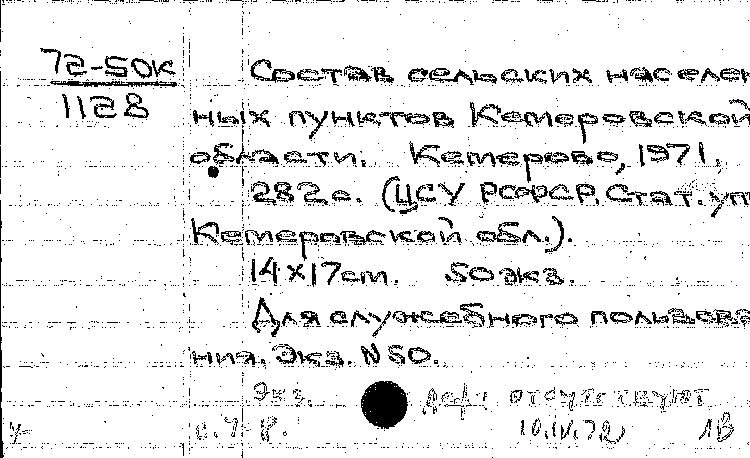 72-50К
1128
Состав сельских населен
ных пунктов Кемеровской
области. Кемерово, 1971.
282с. (ЦСУ РСФСР. Стат. уп
Кемеровской обл.).
14х17cm. 50 экз.
Для служебного пользова
ния. Экз. N 50.
Экз. деф: отсутствуют
10.IV.72 ЛВ